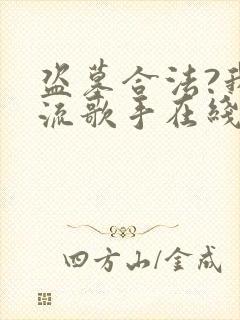 盗墓合法?我
流歌手在线
四方山/金成